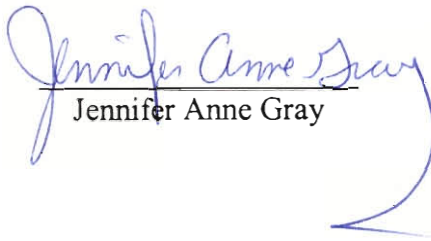 Jennifer Anne Gray
Jennifer Anne Gray